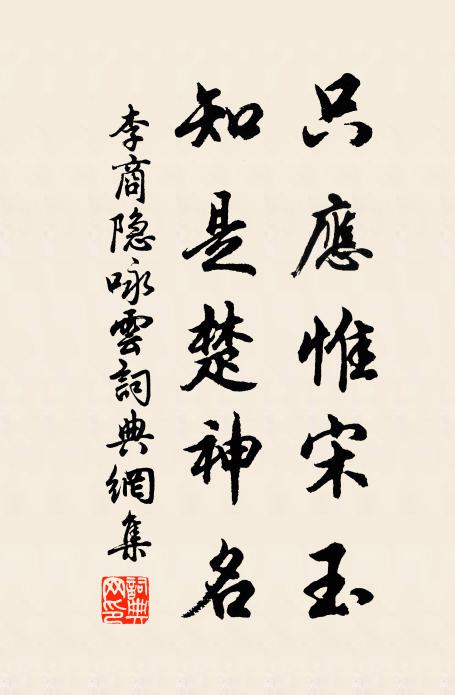 只應惟宋玉
知是楚神名
李商隐咏雲詞典網集
詞典網印